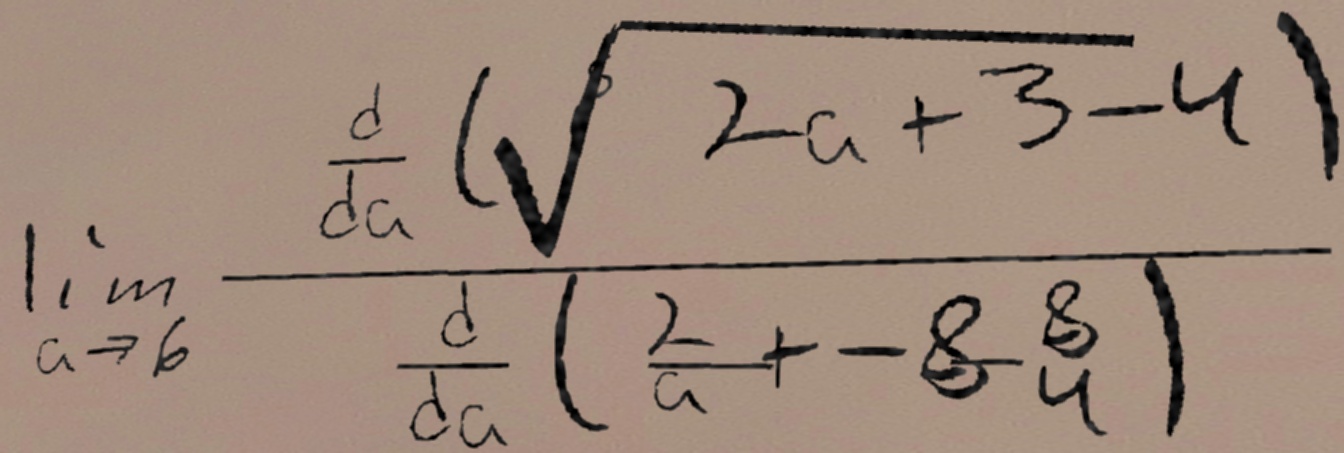 lim a→6 (d/da (√(2a+3) - 4)) / (d/da (2/a + -8 8/4))